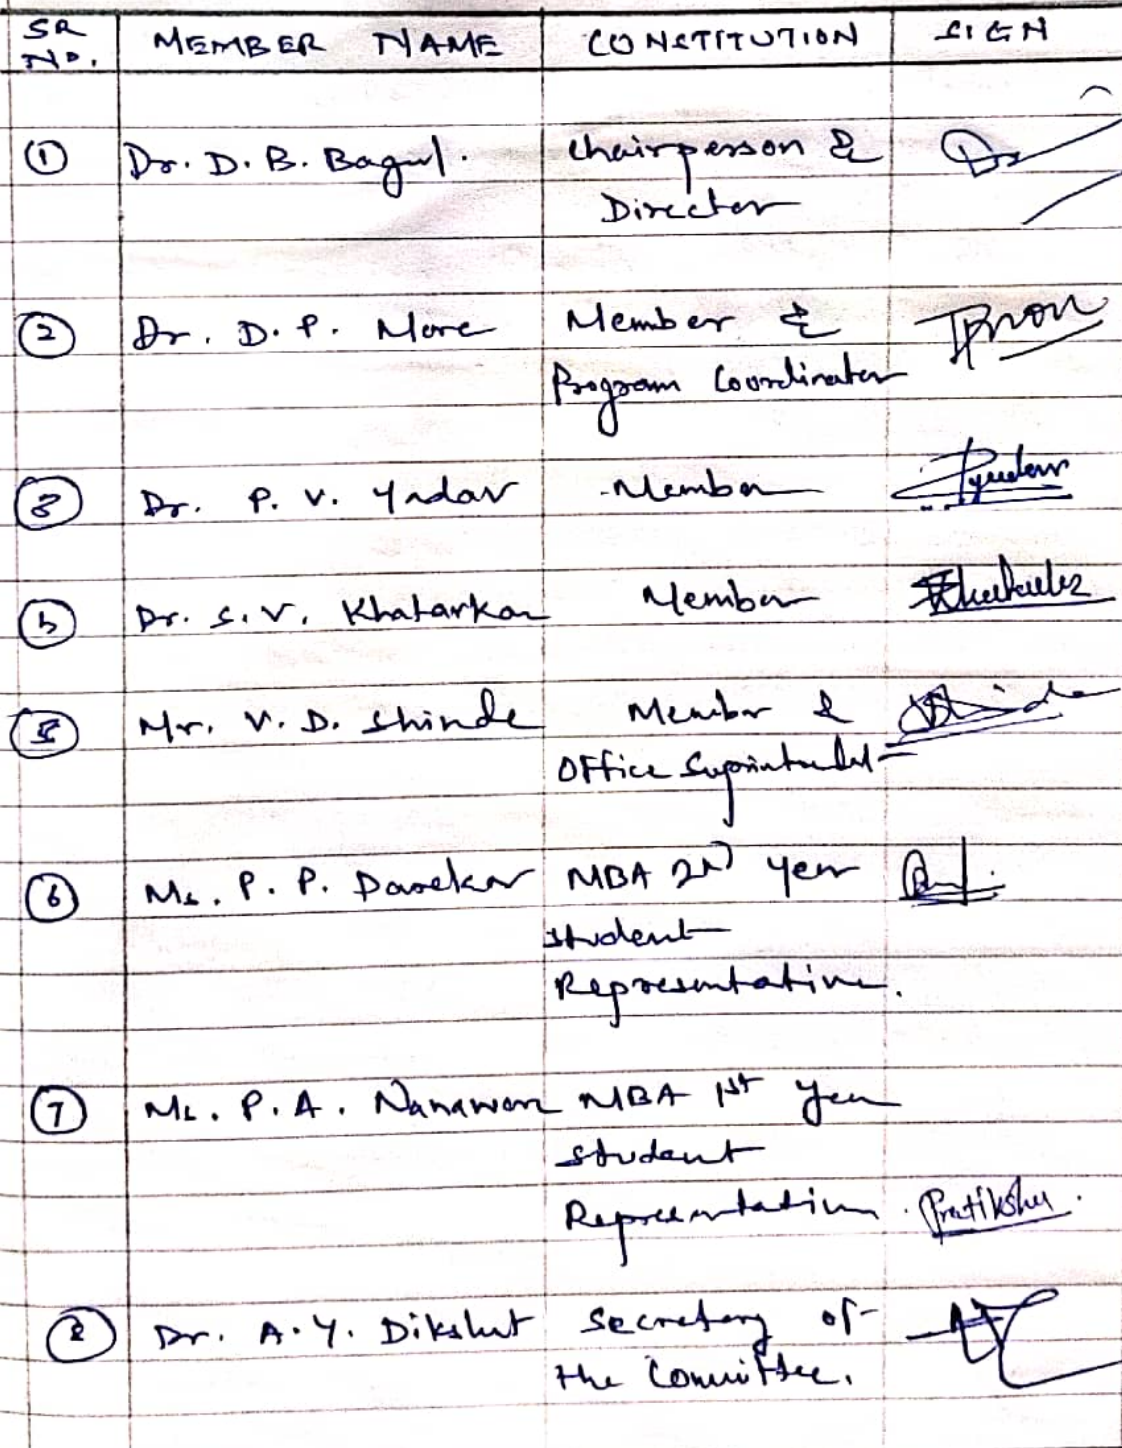 SR NO. MEMBER NAME CONSTITUTION SIGN
① Dr. D. B. Bagul. Chairperson &
Director
② Dr. D. P. More Member &
Program Coordinator
③ Dr. P. V. Yadav Member
Dr. S. V. Khatarkar Member
⑤ Mr. V. D. Shinde Member &
Office Suprintendent
⑥ Ms. P. P. Darekar MBA 2nd year
student
Representative.
⑦ Ms. P. A. Nanaware MBA 1st year
student
Representative. Pratiksha
⑧ Dr. A. Y. Dikshit Secretary of
the Committee.